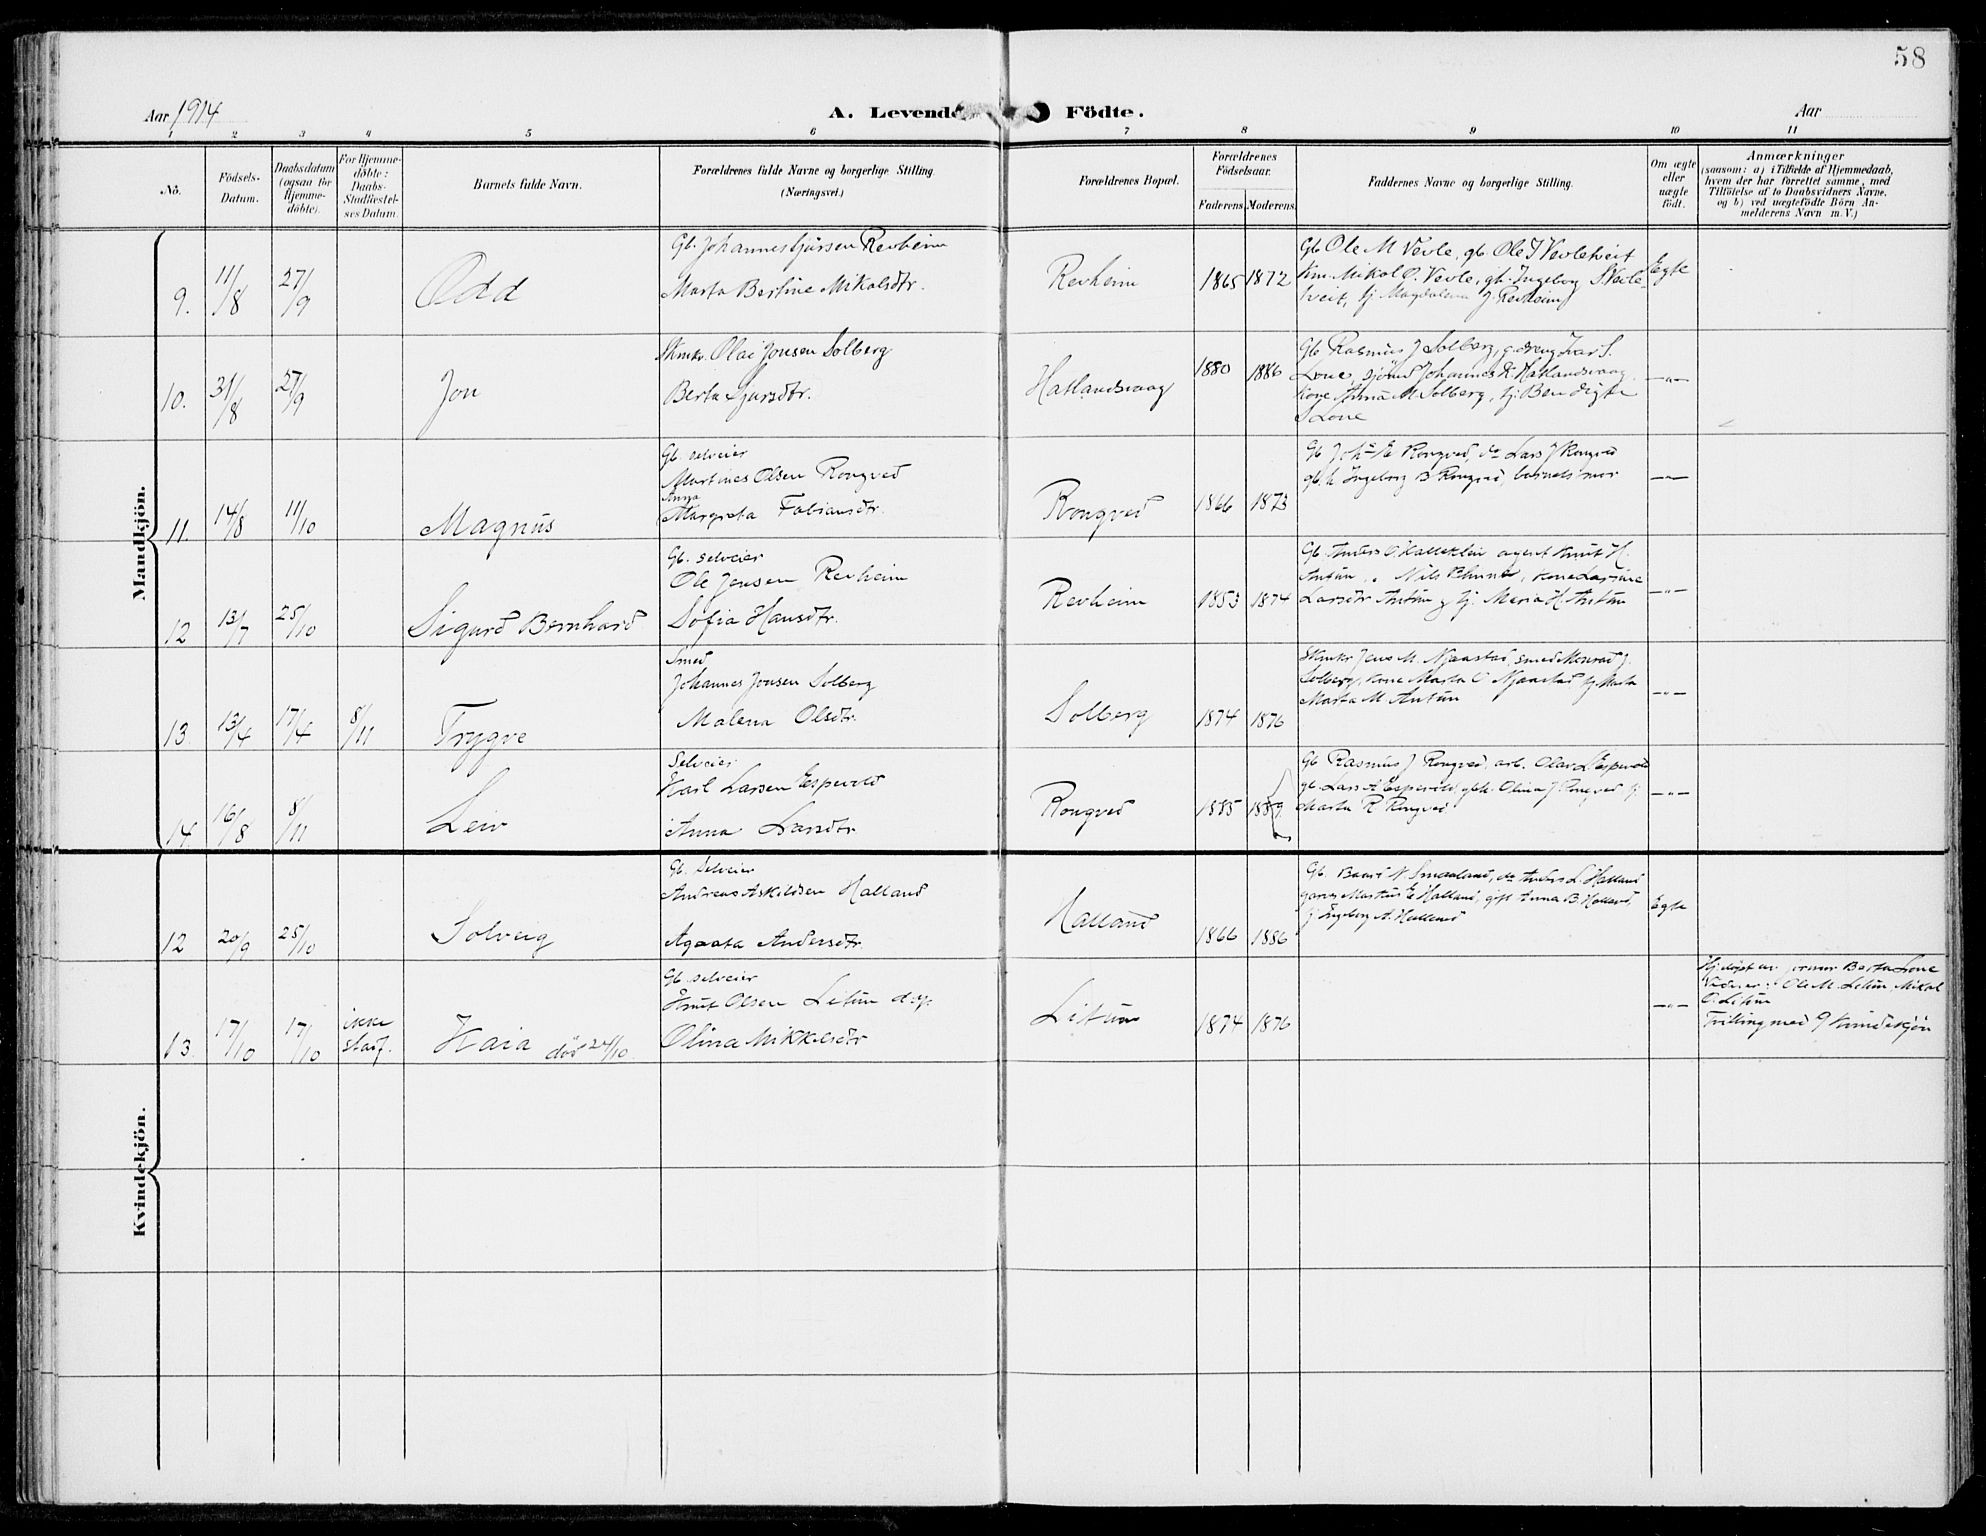 58
Aar 1914
A. Levende Födte.
Aar
1 2 3 4 5 6 7 8 9 10 11
No.
Födsels-Datum.
Daabsdatum (ogsaa for Hjemme-döbte).
For Hjemme-döbte: Daabs-Stadfæstel-ses Datum.
Barnets fulde Navn.
Forældrenes fulde Navne og borgerlige Stilling. (Næringsvei.)
Forældrenes Bopæl.
Forældrenes Födselsaar.
Faderens. Moderens.
Faddernes Navne og borgerlige Stilling.
Om ægte eller uægte födt.
Anmærkninger
(saasom: a) i Tilfælde af Hjemmedaab,
hvem der har forrettet samme, med
Tilföielse af to Daabsvidners Navne,
og b) ved uægtefödte Börn An-
melderens Navn m. V.)
Mandkjön.
9. 11/8 27/9 Odd
Gb. Johannes Revheim
Marta Bertine Mikalsdtr.
Revheim 1865 1872
Gb Ole M Vevle, gb. Ole J Vevletveit
Mikal O. Vevle, Ingeborg S. Vevle-
tveit, tj Magdalena J. Revheim
Egte
10. 31/8 27/9 Jon
Olai Jonsen Solberg
Berta
Hatlandsvaag 1880 1886
Gb Rasmus J Solberg, Ivar S.
Lone, Johannes K. Hatlandsvaag
Kone Anna M. Solberg, tj. Bendigte
S Lone
-"-
11. 14/8 11/10 Magnus
Gb. selveier
Martines Olsen Rongved
Anna
Margreta Fabiansdtr.
Rongved 1866 1873
Gb Johs E Rongved, do Lars J Rongved
Ingeborg B Rongved, barnets mor
-"-
12 13/7 25/10 Sigurd Bernhard
Gb. selveier
Ole Jensen Revheim
Sofia Hansdtr.
Revheim 1853 1874
Gb. Anders agent Knut H.
Antun, Nils kone Larsine
Larsdtr Antun, tj. Maria H. Antun
-"-
13. 13/4 17/4 8/11 Trygve
Smed
Johannes Jonsen Solberg
Malena Olsdtr.
Solberg 1874 1876
Jens M. Njaastad, smed Monrad J.
Solberg, kone Marta O Njaastad
Marta M. Antun
-"-
14. 16/8 8/11 Leiv
Selveier
Karl Larsen Espevold
Anna Larsdtr
Rongved 1885 1889
Gb Rasmus J Rongved, arb. Olav L Espevold
gb. Lars A Espevold, Olina J Rongved tj
Marta R Rongved.
-"-
Kvindekjön.
12 20/9 25/10 Solveig
Gb. Selveier
Andreas Askildsen Halland
Agaata Andersdtr
Halland 1866 1886
Gb. Baard N Smaaland, do Anders L Halland
Martin E Halland, gift Anna B. Halland,
tj Ingeborg A. Halland
Egte
13. 17/10 17/10 ikke stadf. Kaia död 24/10.
Gb. selveier
Knut Olsen Litun
Olina Mikkelsdtr
Litun 1874 1876
-"-
Hj.døpt av Berta Lone
Vidner: Ole M. Litun, Mikal
O. Litun
Trilling med 9 kvindekjön